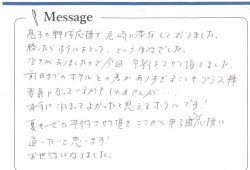 Message
息子の野球応援で尼崎に滞在しておりました。
勝ったらホテルをとって、という状況でした。
空きがありましたので今回 予約させて頂きました。
前日までのホテルとの差がありすぎることもプラス
なっているかもしれませんが…
本当に泊まってよかったと思えるホテルです！
夏まで 予約させて頂き ここから甲子園応援に
通いたいと思います！
お世話になりました。